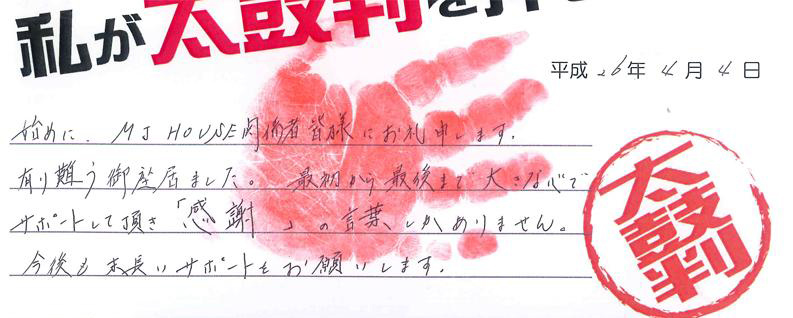 私が太鼓判を押
平成26年4月4日
始めに、MJ HOUSE関係者皆様にお礼申します。
有り難う御座居ました。最初から最後まで大きな心で
サポートして頂き「感謝」の言葉しかありません。
今後も末長いサポートをお願いします。
太鼓判